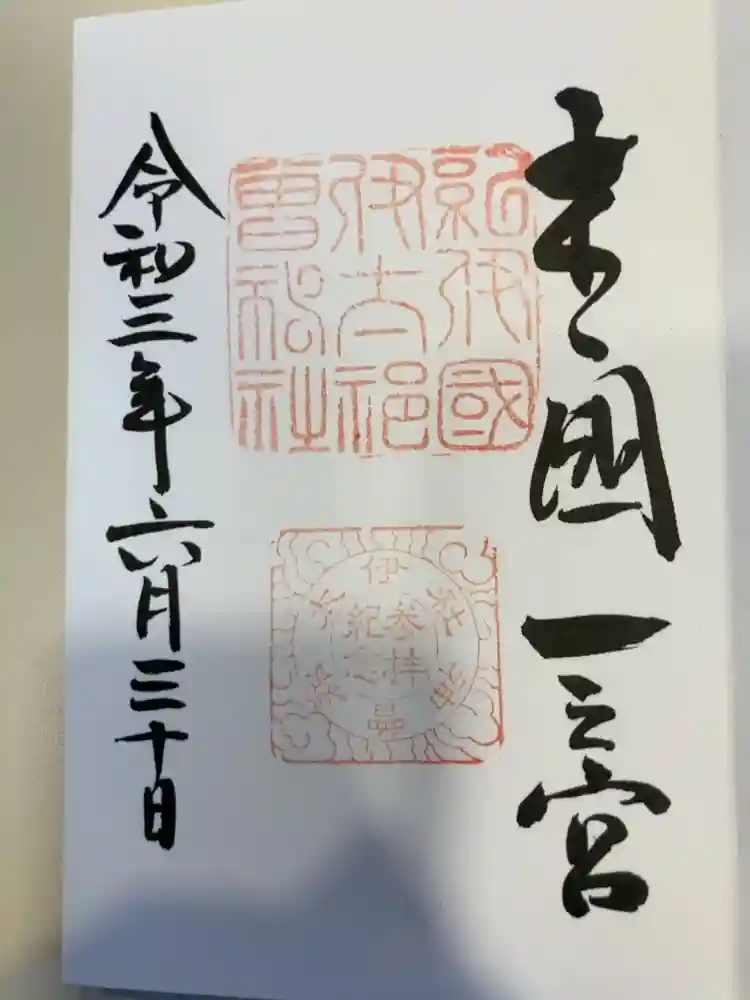 國一之宮
紀伊國
伊太祁
曽神社
伊太祁曽神社
参拝
紀念
令和三年六月三十日